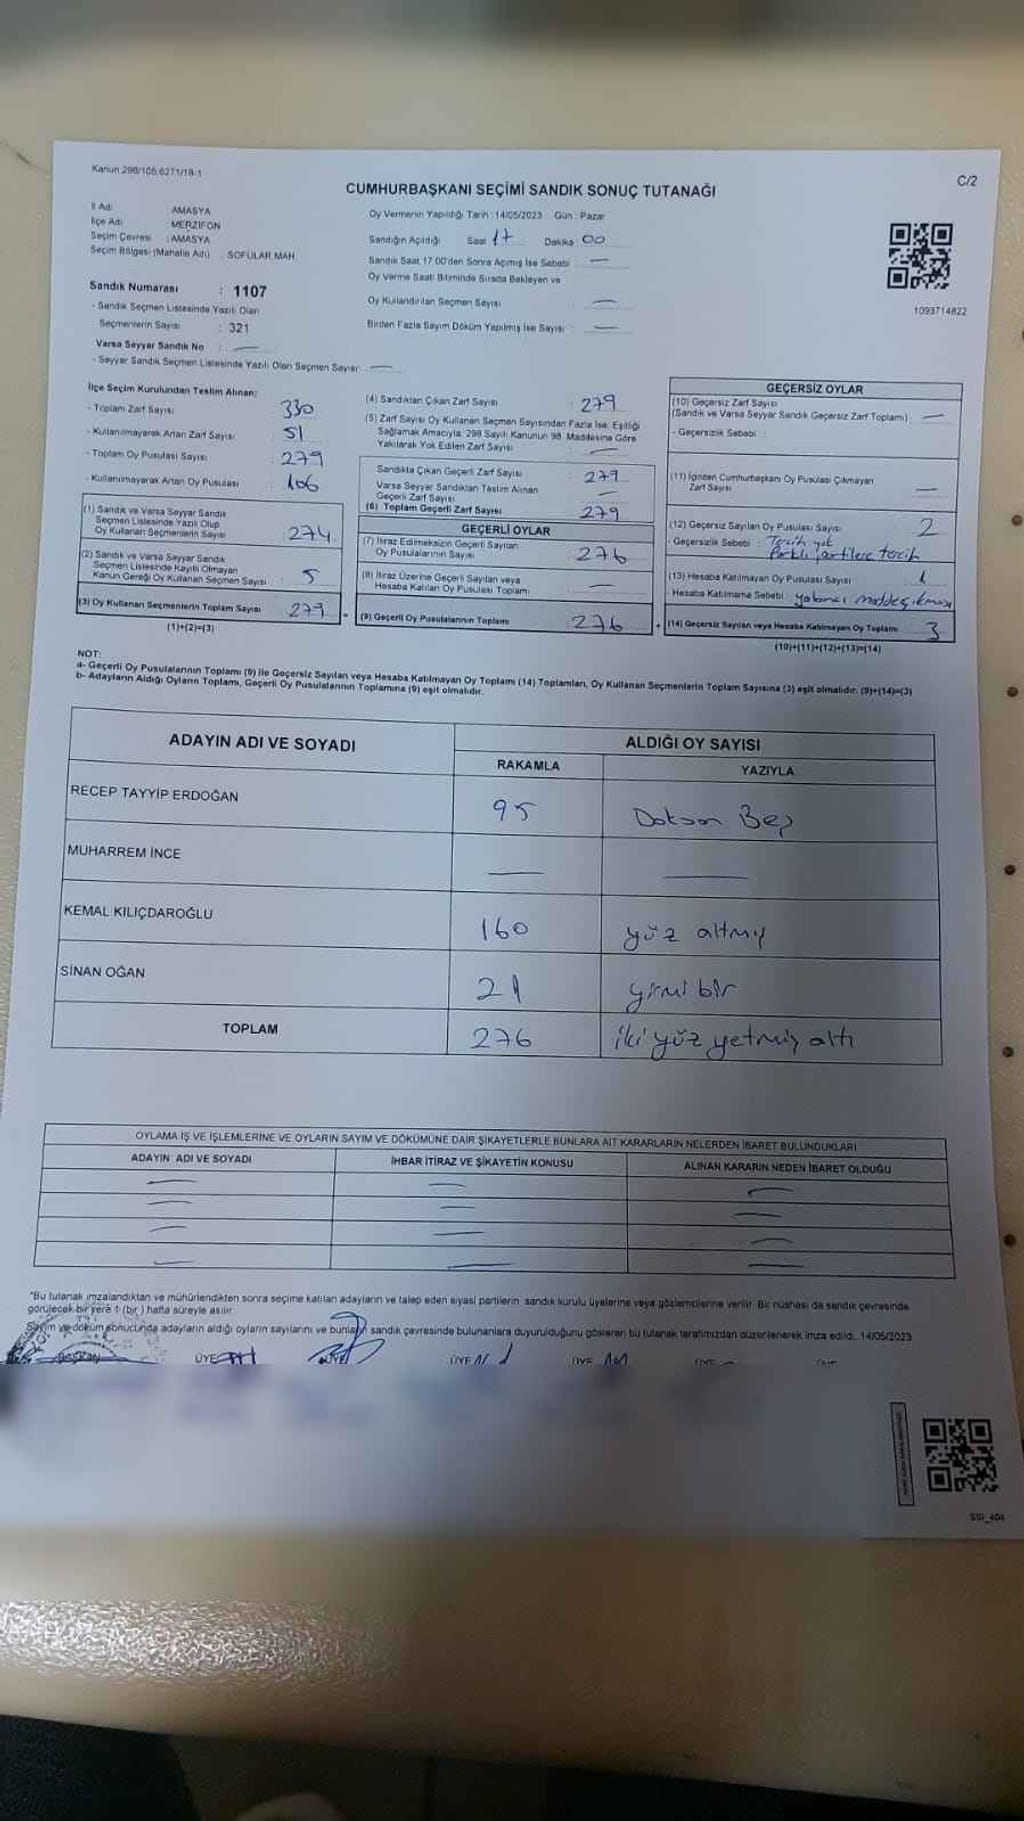 Kanun 298/105;6271/18-1
C/2
CUMHURBAŞKANI SEÇİMİ SANDIK SONUÇ TUTANAĞI
İl Adı : AMASYA
İlçe Adı : MERZİFON
Seçim Çevresi : AMASYA
Seçim Bölgesi (Mahalle Adı) : SOFULAR MAH.
Sandık Numarası : 1107
- Sandık Seçmen Listesinde Yazılı Olan
Seçmenlerin Sayısı : 321
Varsa Seyyar Sandık No : —
- Seyyar Sandık Seçmen Listesinde Yazılı Olan Seçmen Sayısı: —
Oy Vermenin Yapıldığı Tarih : 14/05/2023 Gün : Pazar
Sandığın Açıldığı Saat 17 Dakika 00
Sandık Saat 17.00'den Sonra Açılmış İse Sebebi : —
Oy Verme Saati Bitiminde Sırada Bekleyen ve
Oy Kullandırılan Seçmen Sayısı : —
Birden Fazla Sayım Döküm Yapılmış İse Sayısı : —
1093714822
İlçe Seçim Kurulundan Teslim Alınan;
- Toplam Zarf Sayısı : 330
- Kullanılmayarak Artan Zarf Sayısı : 51
- Toplam Oy Pusulası Sayısı : 279
- Kullanılmayarak Artan Oy Pusulası : 106
(1) Sandık ve Varsa Seyyar Sandık
Seçmen Listesinde Yazılı Olup
Oy Kullanan Seçmenlerin Sayısı : 274
(2) Sandık ve Varsa Seyyar Sandık
Seçmen Listesinde Kayıtlı Olmayan
Kanun Gereği Oy Kullanan Seçmen Sayısı : 5
(3) Oy Kullanan Seçmenlerin Toplam Sayısı : 279
(1)+(2)=(3)
(4) Sandıktan Çıkan Zarf Sayısı : 279
(5) Zarf Sayısı Oy Kullanan Seçmen Sayısından Fazla İse, Eşitliği
Sağlamak Amacıyla, 298 Sayılı Kanunun 98. Maddesine Göre
Yakılarak Yok Edilen Zarf Sayısı : —
Sandıkta Çıkan Geçerli Zarf Sayısı : 279
Varsa Seyyar Sandıktan Teslim Alınan
Geçerli Zarf Sayısı : —
(6) Toplam Geçerli Zarf Sayısı : 279
GEÇERLİ OYLAR
(7) İtiraz Edilmeksizin Geçerli Sayılan
Oy Pusulalarının Sayısı : 276
(8) İtiraz Üzerine Geçerli Sayılan veya
Hesaba Katılan Oy Pusulası Toplamı : —
(9) Geçerli Oy Pusulalarının Toplamı : 276
GEÇERSİZ OYLAR
(10) Geçersiz Zarf Sayısı
(Sandık ve Varsa Seyyar Sandık Geçersiz Zarf Toplamı) : —
- Geçersizlik Sebebi :
(11) İçinden Cumhurbaşkanı Oy Pusulası Çıkmayan
Zarf Sayısı : —
(12) Geçersiz Sayılan Oy Pusulası Sayısı : 2
- Geçersizlik Sebebi : Tercih yok
Farklı partilere tercih
(13) Hesaba Katılmayan Oy Pusulası Sayısı : 1
Hesaba Katılmama Sebebi : yabancı madde çıkması
(14) Geçersiz Sayılan veya Hesaba Katılmayan Oy Toplamı : 3
(10)+(11)+(12)+(13)=(14)
NOT:
a- Geçerli Oy Pusulalarının Toplamı (9) ile Geçersiz Sayılan veya Hesaba Katılmayan Oy Toplamı (14) Toplamları, Oy Kullanan Seçmenlerin Toplam Sayısına (3) eşit olmalıdır. (9)+(14)=(3)
b- Adayların Aldığı Oyların Toplamı, Geçerli Oy Pusulalarının Toplamına (9) eşit olmalıdır.
ADAYIN ADI VE SOYADI
ALDIĞI OY SAYISI
RAKAMLA YAZIYLA
RECEP TAYYİP ERDOĞAN 95 Doksan Beş
MUHARREM İNCE — —
KEMAL KILIÇDAROĞLU 160 yüz altmış
SİNAN OĞAN 21 yirmi bir
TOPLAM 276 iki yüz yetmiş altı
OYLAMA İŞ VE İŞLEMLERİNE VE OYLARIN SAYIM VE DÖKÜMÜNE DAİR ŞİKAYETLERLE BUNLARA AİT KARARLARIN NELERDEN İBARET BULUNDUKLARI
ADAYIN ADI VE SOYADI İHBAR İTİRAZ VE ŞİKAYETİN KONUSU ALINAN KARARIN NEDEN İBARET OLDUĞU
— — —
— — —
— — —
— — —
*Bu tutanak imzalandıktan ve mühürlendikten sonra seçime katılan adayların ve talep eden siyasi partilerin sandık kurulu üyelerine veya gözlemcilerine verilir. Bir nüshası da sandık çevresinde
görülecek bir yere 1 (bir) hafta süreyle asılır.
Sayım ve döküm sonucunda adayların aldığı oyların sayılarını ve bunların sandık çevresinde bulunanlara duyurulduğunu gösteren bu tutanak tarafımızdan düzenlenerek imza edildi. 14/05/2023
ÜYE ÜYE ÜYE ÜYE